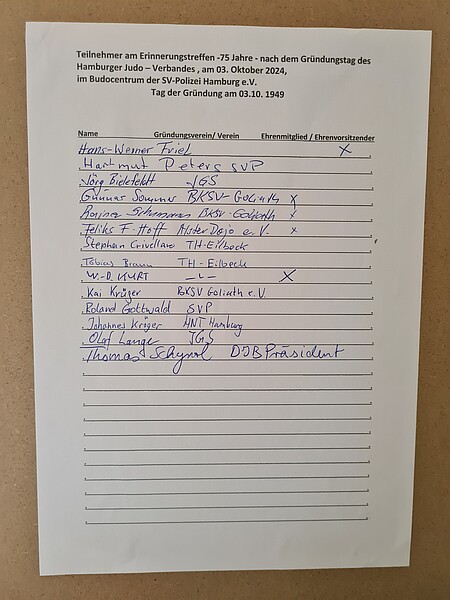 Teilnehmer am Erinnerungstreffen -75 Jahre - nach dem Gründungstag des
Hamburger Judo – Verbandes , am 03. Oktober 2024,
im Budocentrum der SV-Polizei Hamburg e.V.
Tag der Gründung am 03.10. 1949
Name Gründungsverein/ Verein Ehrenmitglied / Ehrenvorsitzender
Hans-Werner Friel X
Hartmut Peters SVP
Jörg Bielefeldt JGS
Gunnar Sommer BKSV-Goliath x
Rainer BKSV-Goliath x
Feliks F. Hoff Alster Dojo e.V. x
Stephan Crivellaro TH-Eilbeck
Tobias Braun TH-Eilbeck
W.-D. KURT -"- X
Kai Krüger BKSV Goliath e.V.
Roland Gottwald SVP
Johannes Kröger HNT Hamburg
Olaf Lange JGS
Thomas Schynol DJB Präsident